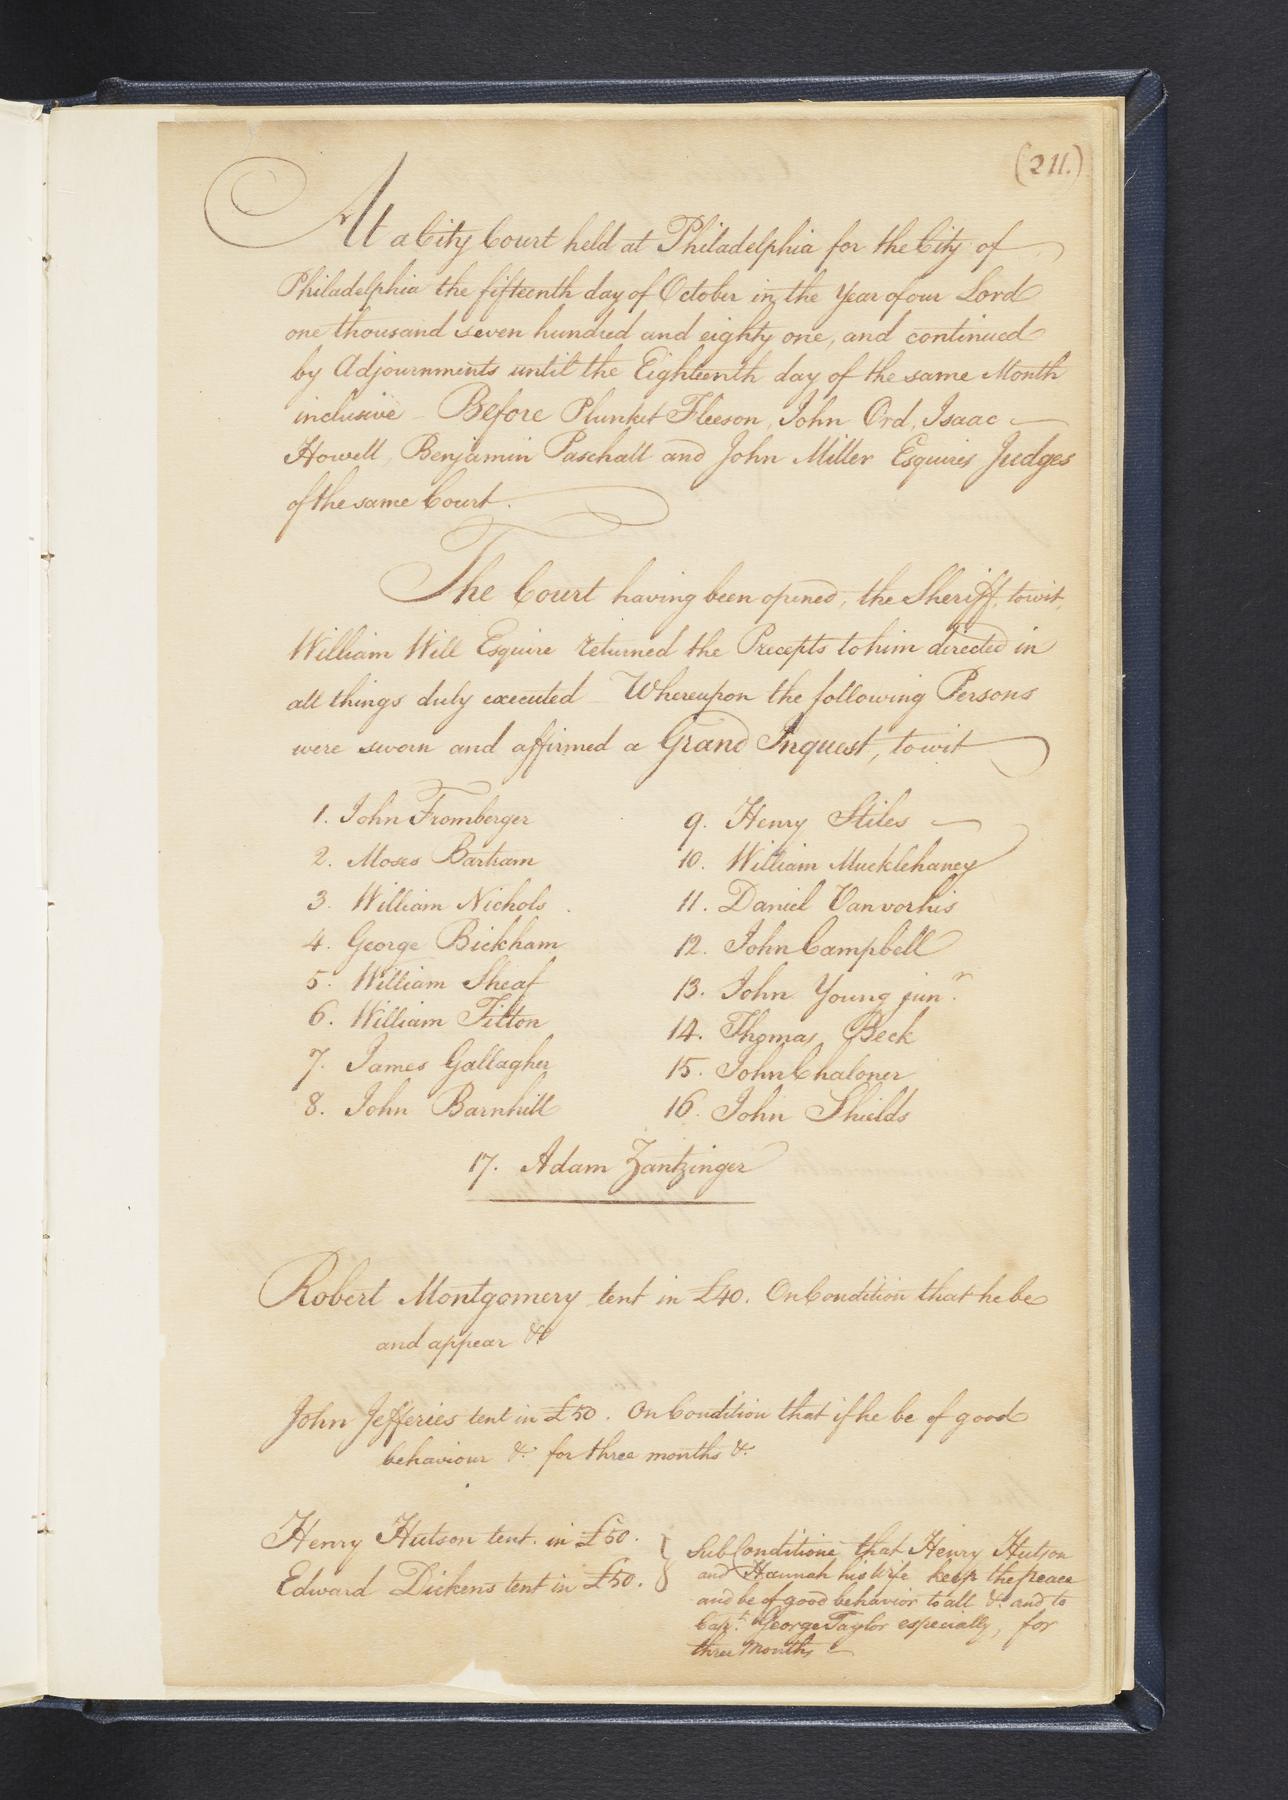 (211.)
At a City Court held at Philadelphia for the City of
Philadelphia the fifteenth day of October in the Year of our Lord
one thousand seven hundred and eighty one, and continued
by Adjournments until the Eighteenth day of the same Month
inclusive - Before Plunket Fleeson, John Ord, Isaac
Howell, Benjamin Paschall and John Miller Esquires Judges
of the same Court.
The Court having been opened, the Sheriff, towit,
William Will Esquire returned the Precepts to him directed in
all things duly executed - Whereupon the following Persons
were sworn and affirmed a Grand Inquest, towit
1. John Fromberger
2. Moses Bartram
3. William Nichols
4. George Bickham
5. William Sheaf
6. William Tilton
7. James Gallagher
8. John Barnhill
9. Henry Stiles
10. William Mucklehaney
11. Daniel Vanvorhis
12. John Campbell
13. John Young junr.
14. Thomas Beck
15. John Chaloner
16. John Shields
17. Adam Zantzinger
Robert Montgomery tent in £40. On Condition that he be
and appear &c
John Jefferies tent in £50. On Condition that if he be of good
behaviour &c for three months &c.
Henry Hutson tent. in £50.
Edward Dickens tent in £50.
Sub Conditione that Henry Hutson
and Hannah his Wife keep the peace
and be of good behavior to all &c. and to
Capt. George Taylor especially, for
three Months